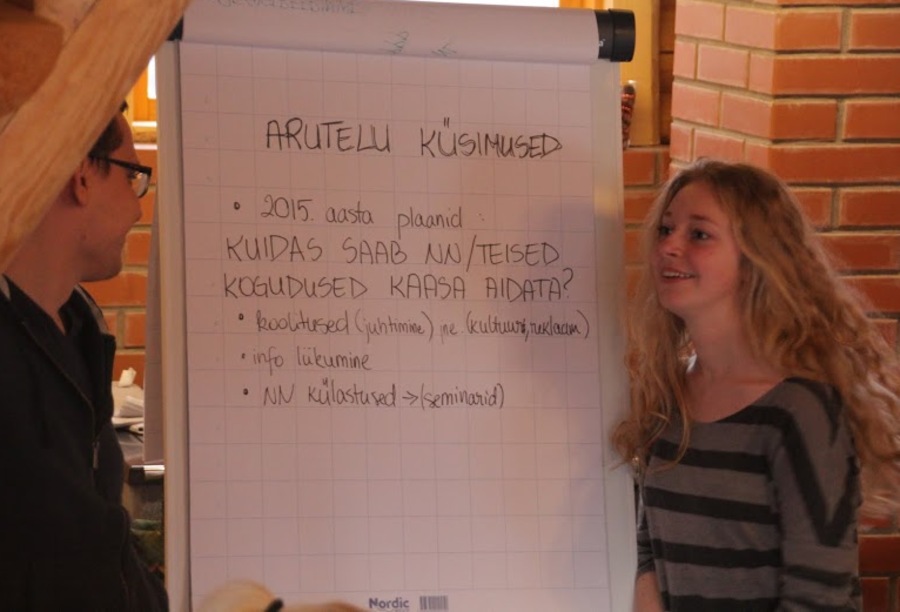 ARUTELU KÜSIMUSED
• 2015. aasta plaanid :
KUIDAS SAAB NN/TEISED
KOGUDUSED KAASA AIDATA?
• koolitused (juhtimine) jne. (kultuur, reklaam)
• info liikumine
• NN külastused → (seminarid)
Nordic